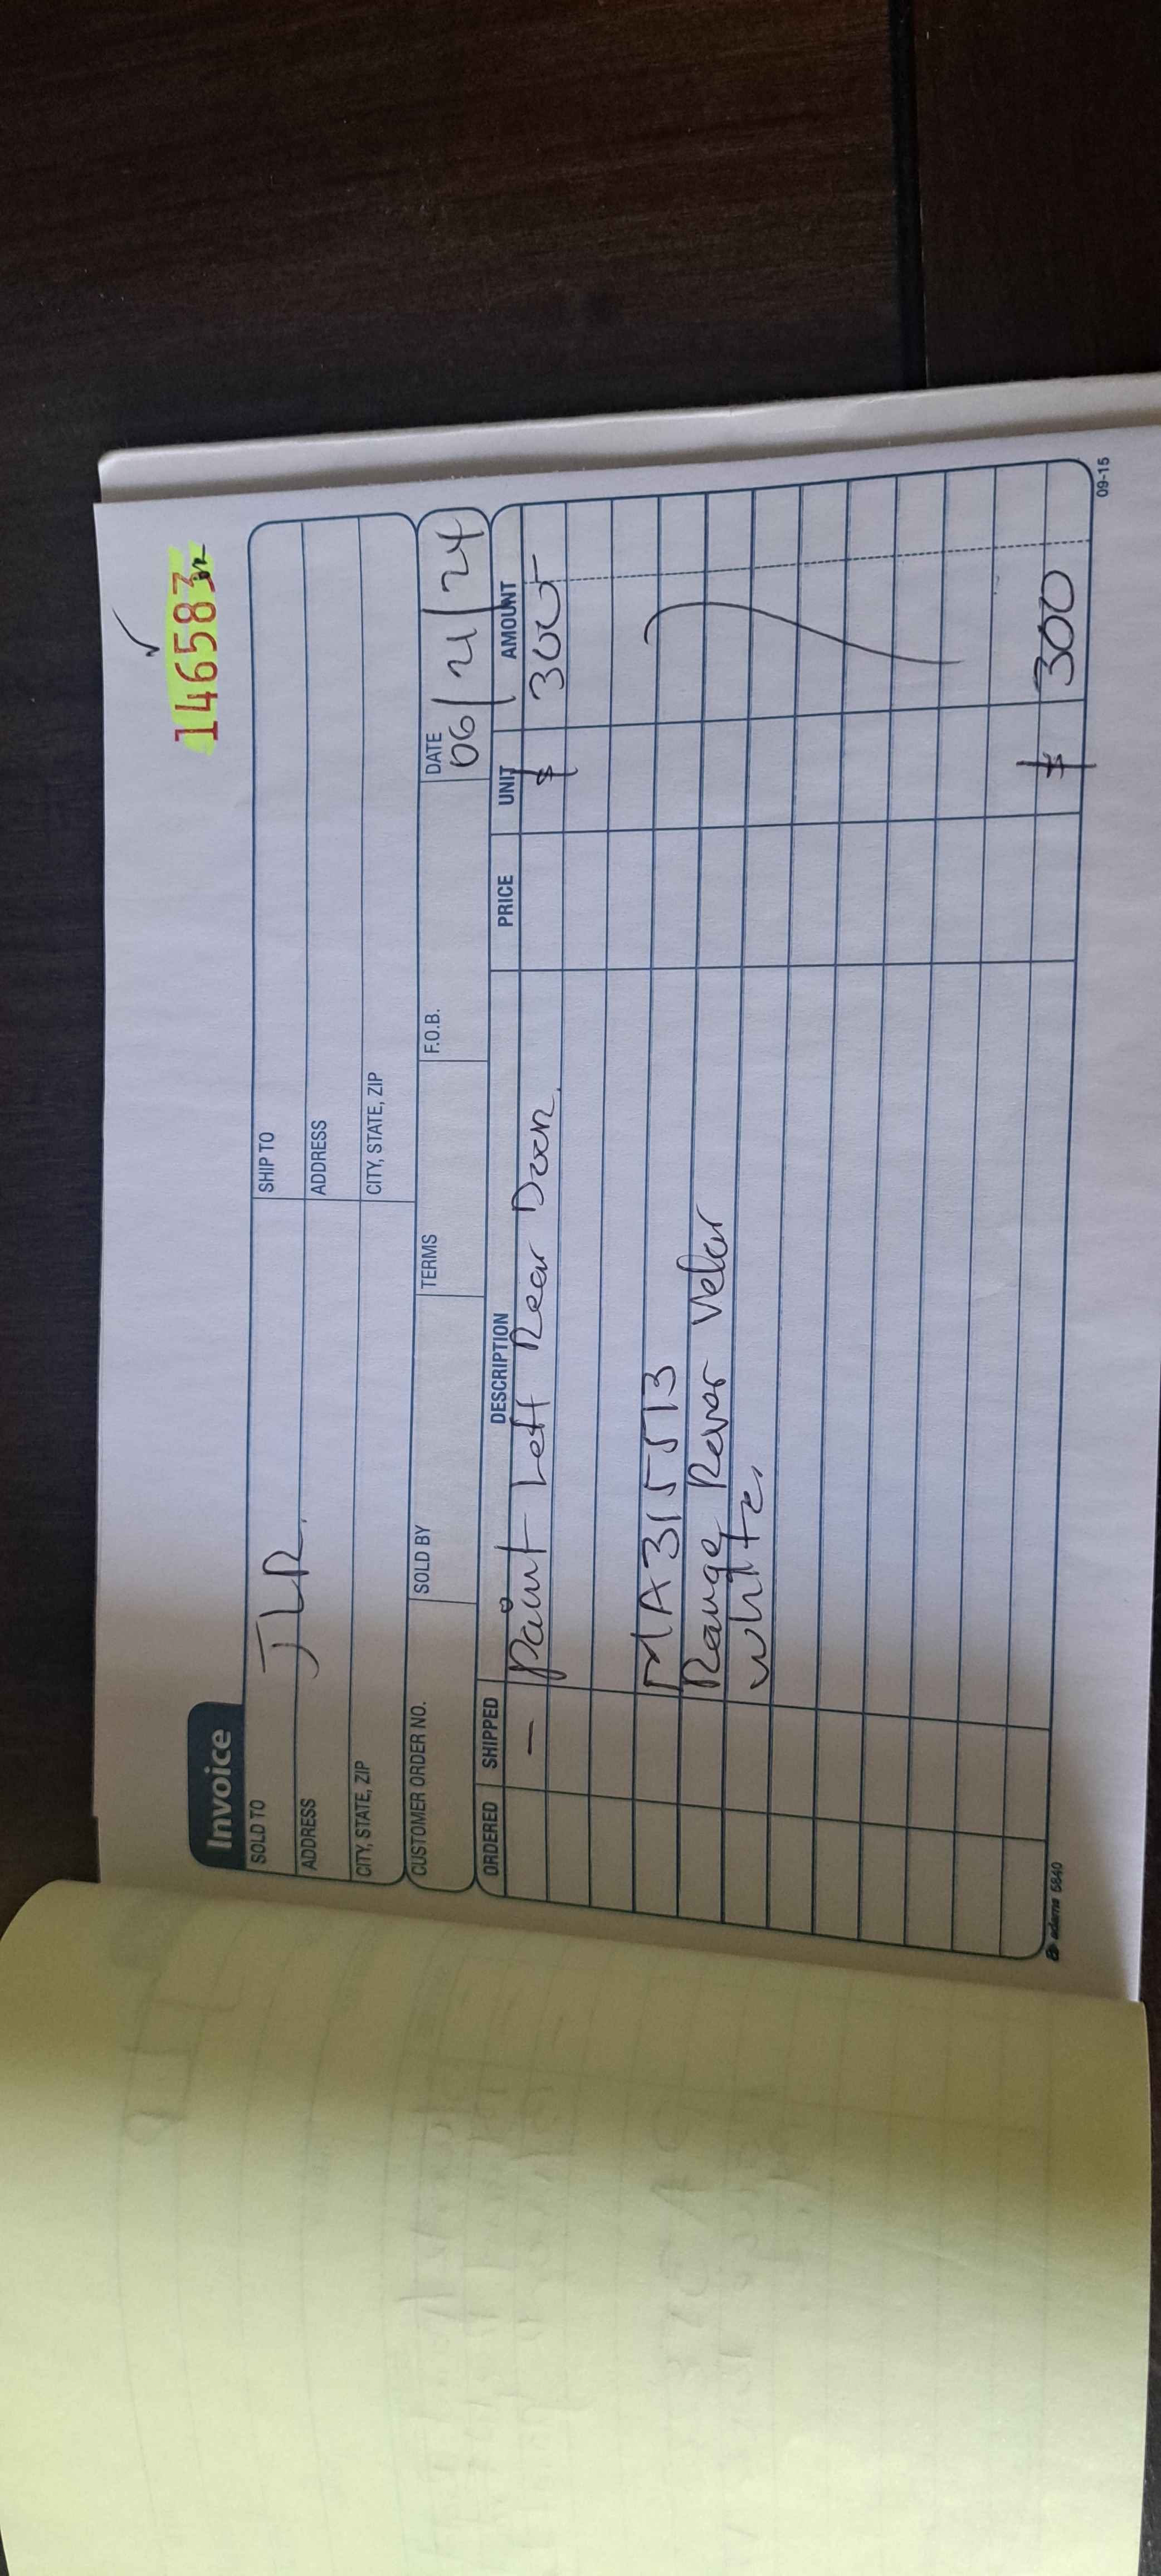 146583
Invoice
SOLD TO JLR.
SHIP TO
ADDRESS
ADDRESS
CITY, STATE, ZIP
CITY, STATE, ZIP
CUSTOMER ORDER NO. SOLD BY TERMS F.O.B. DATE 06/21/24
ORDERED SHIPPED DESCRIPTION PRICE UNIT AMOUNT
- Paint Left Rear Door. $ 300
MA315513
Range Rover Velar
white.
$ 300
adams 5840 09-15